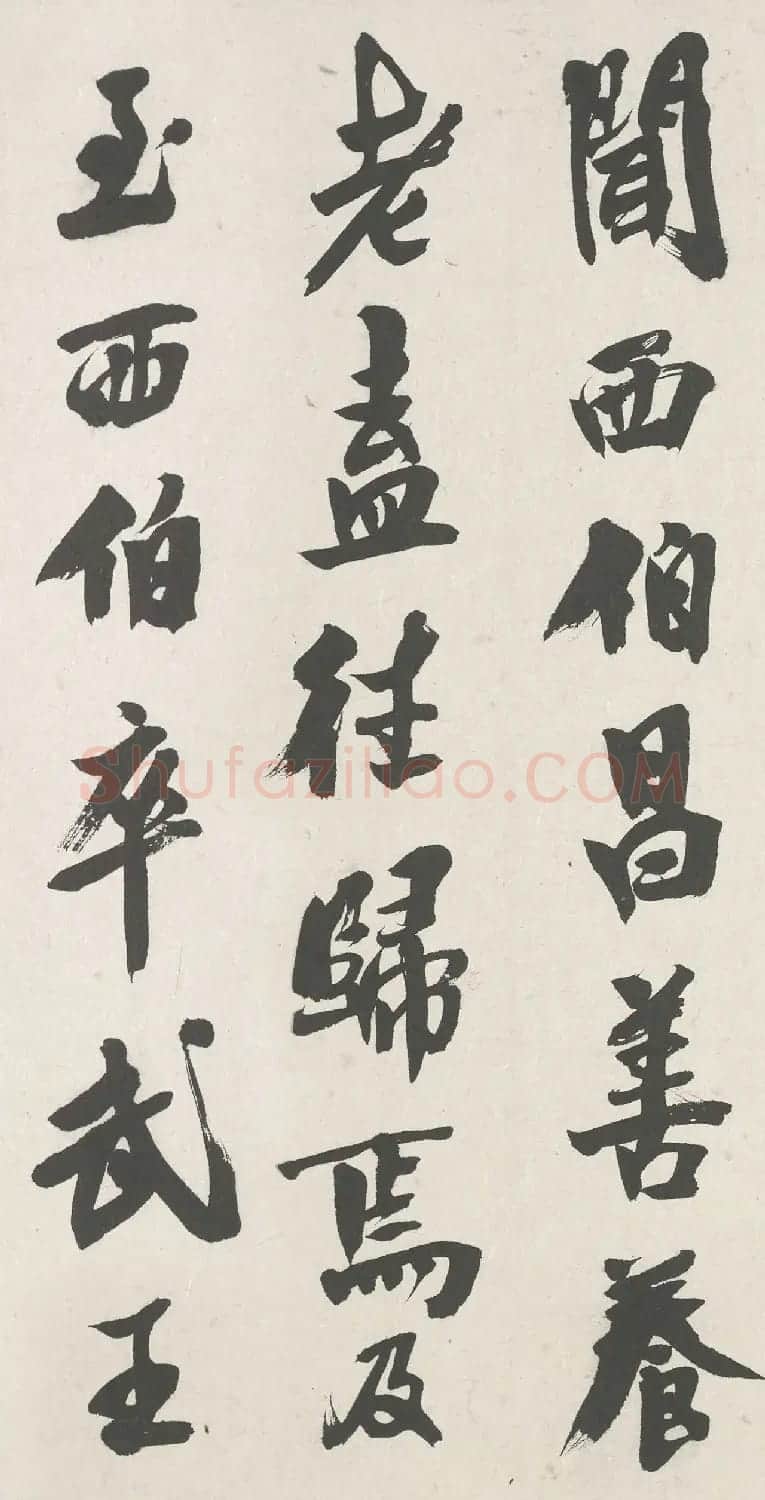 聞西伯昌善養
老盍往歸焉及
至西伯卒武王
Shufaziliao.COM